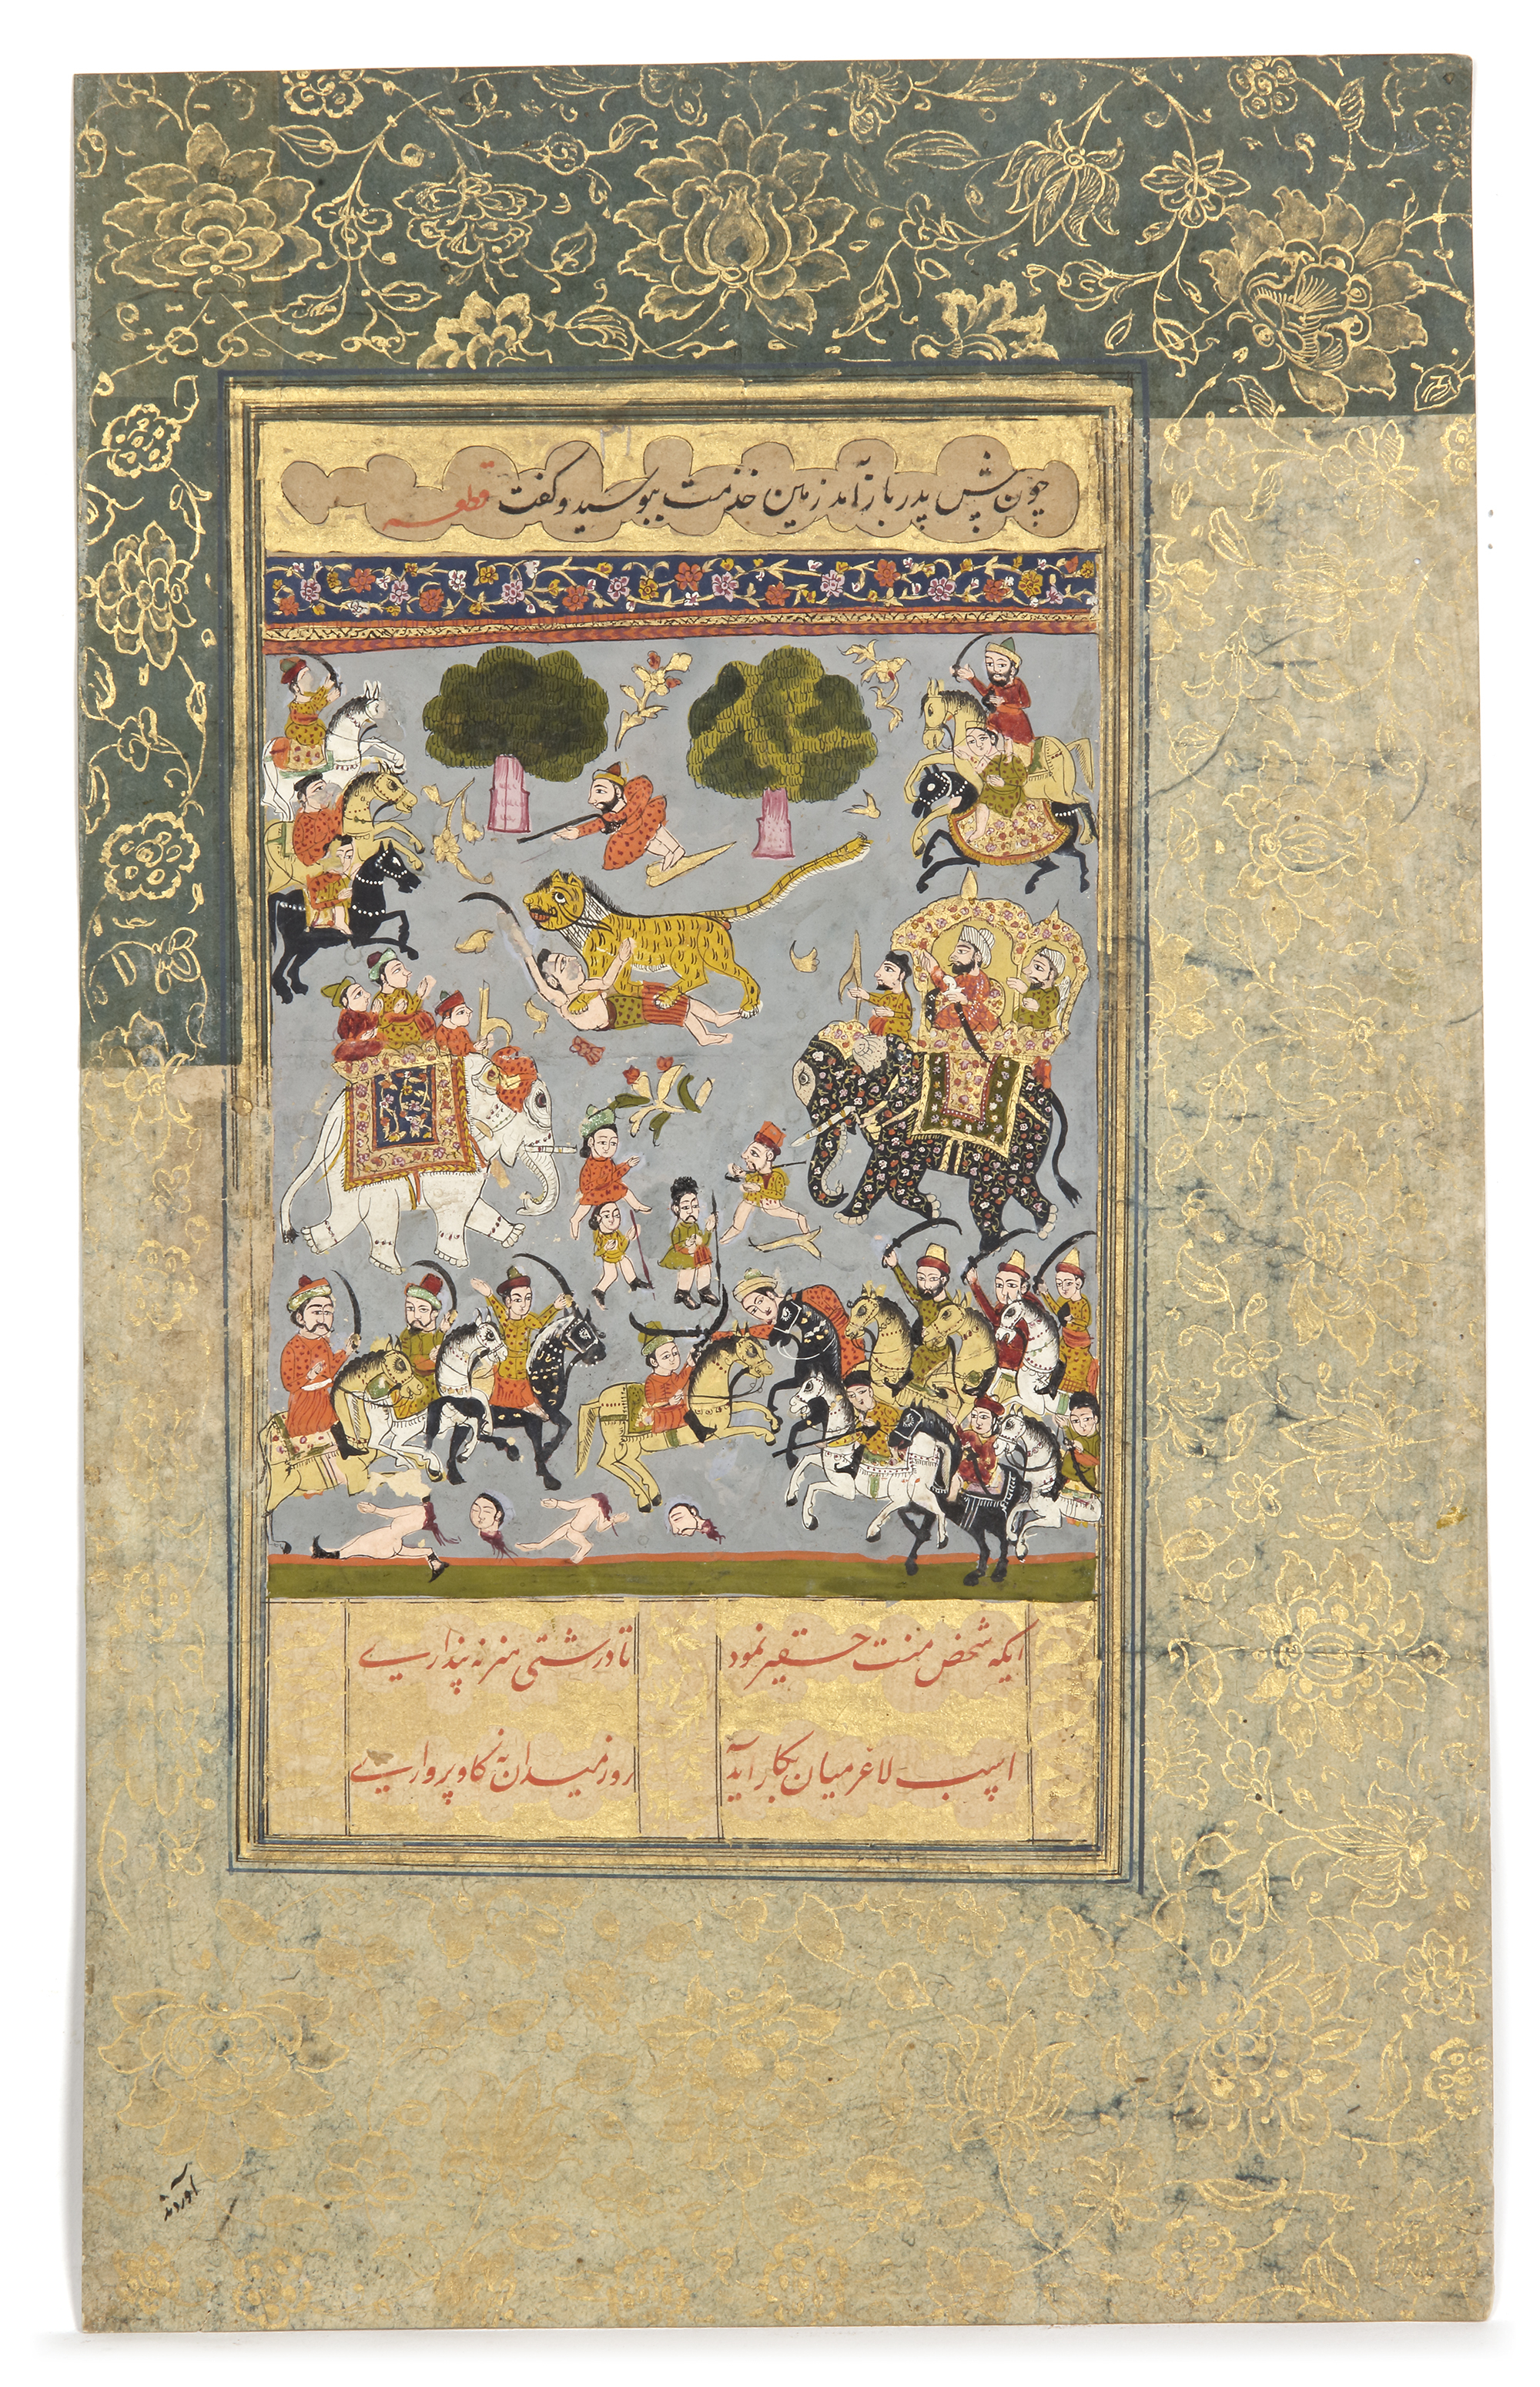 چون پیش پدر باز آمد زمین خدمت ببوسید و گفت قطعه
ایکه شخص منت حقیر نمود تا درشتی هنر نه پنداری
اسب لاغر میان بکار آید روز میدان نه گاو پرواری
آوردند